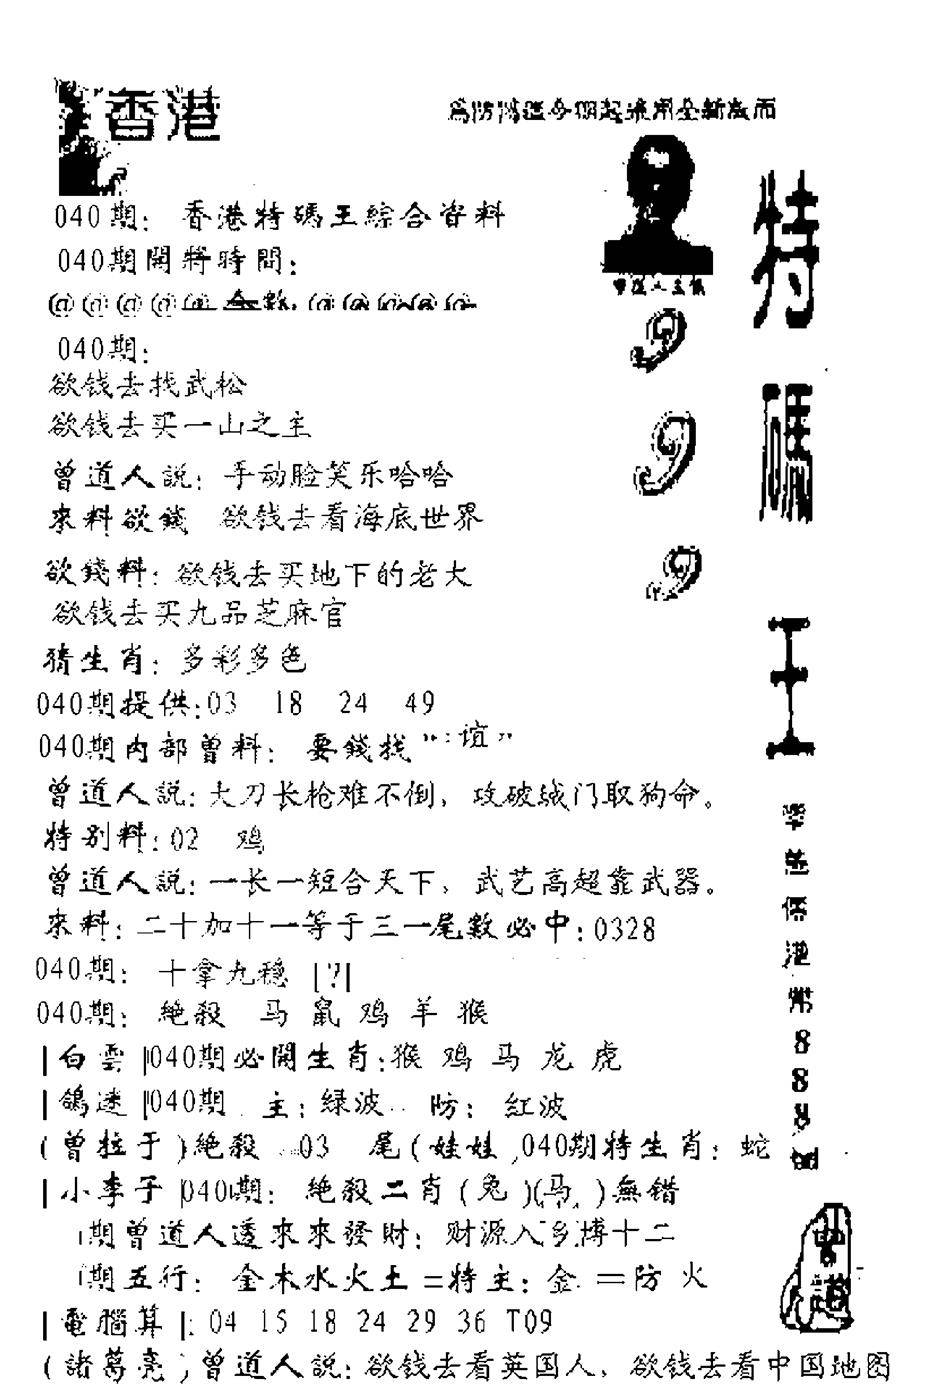 香港
為防偽造今期起採用全新版面
040期：香港特碼王綜合資料
040期開將時間：
曾道人主僕
040期：
欲钱去找武松
欲钱去买一山之主
曾道人説：手动脸笑乐哈哈
來料欲錢 欲钱去看海底世界
欲錢料：欲钱去买地下的老大
欲钱去买九品芝麻官
猜生肖：多彩多色
040期提供:03 18 24 49
040期内部曾料：要錢找"：谊"
曾道人説：大刀长枪难不倒，攻破城门取狗命。
特别料：02 鸡
曾道人説：一长一短合天下，武艺高超靠武器。
來料：二十加十一等于三一尾數必中：0328
040期：十拿九稳 [?]
040期：絶殺 马 鼠 鸡 羊 猴
|白雲|040期必開生肖:猴 鸡 马 龙 虎
|鴿迷|040期 主：绿波 防：红波
(曾拉于)絶殺 03 尾(娃娃 040期特生肖：蛇
|小李子|040期：絶殺二肖(兔)(马)無错
期曾道人透來來發財：财源入乡博十二
期五行：金木水火土=特主：金=防火
|電腦算|：04 15 18 24 29 36 T09
(諸葛亮)曾道人説：欲钱去看英国人，欲钱去看中国地图
9
9
9
特碼王
888
曾道